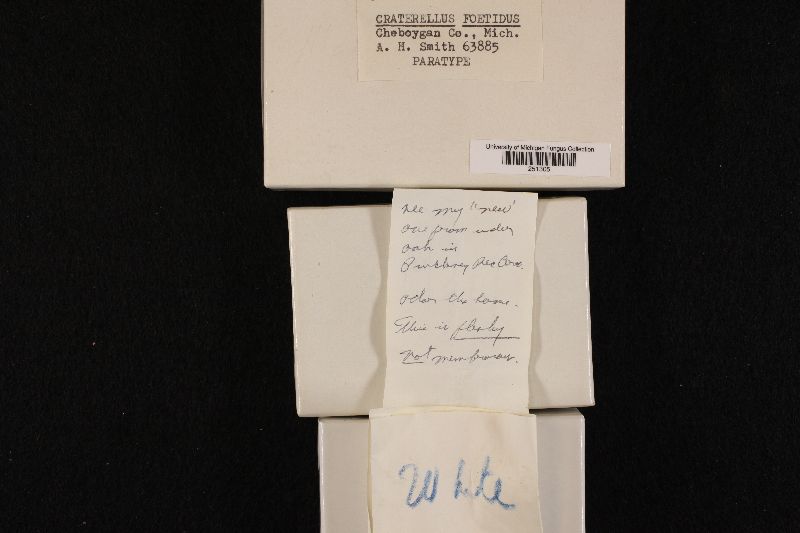 CRATERELLUS FOETIDUS
Cheboygan Co., Mich.
A. H. Smith 63885
PARATYPE
University of Michigan Fungus Collection
251305
see my "new"
one from under
oak in
Pinckney Rec Area.
odor the same.
This is fleshy
not membranous.
White